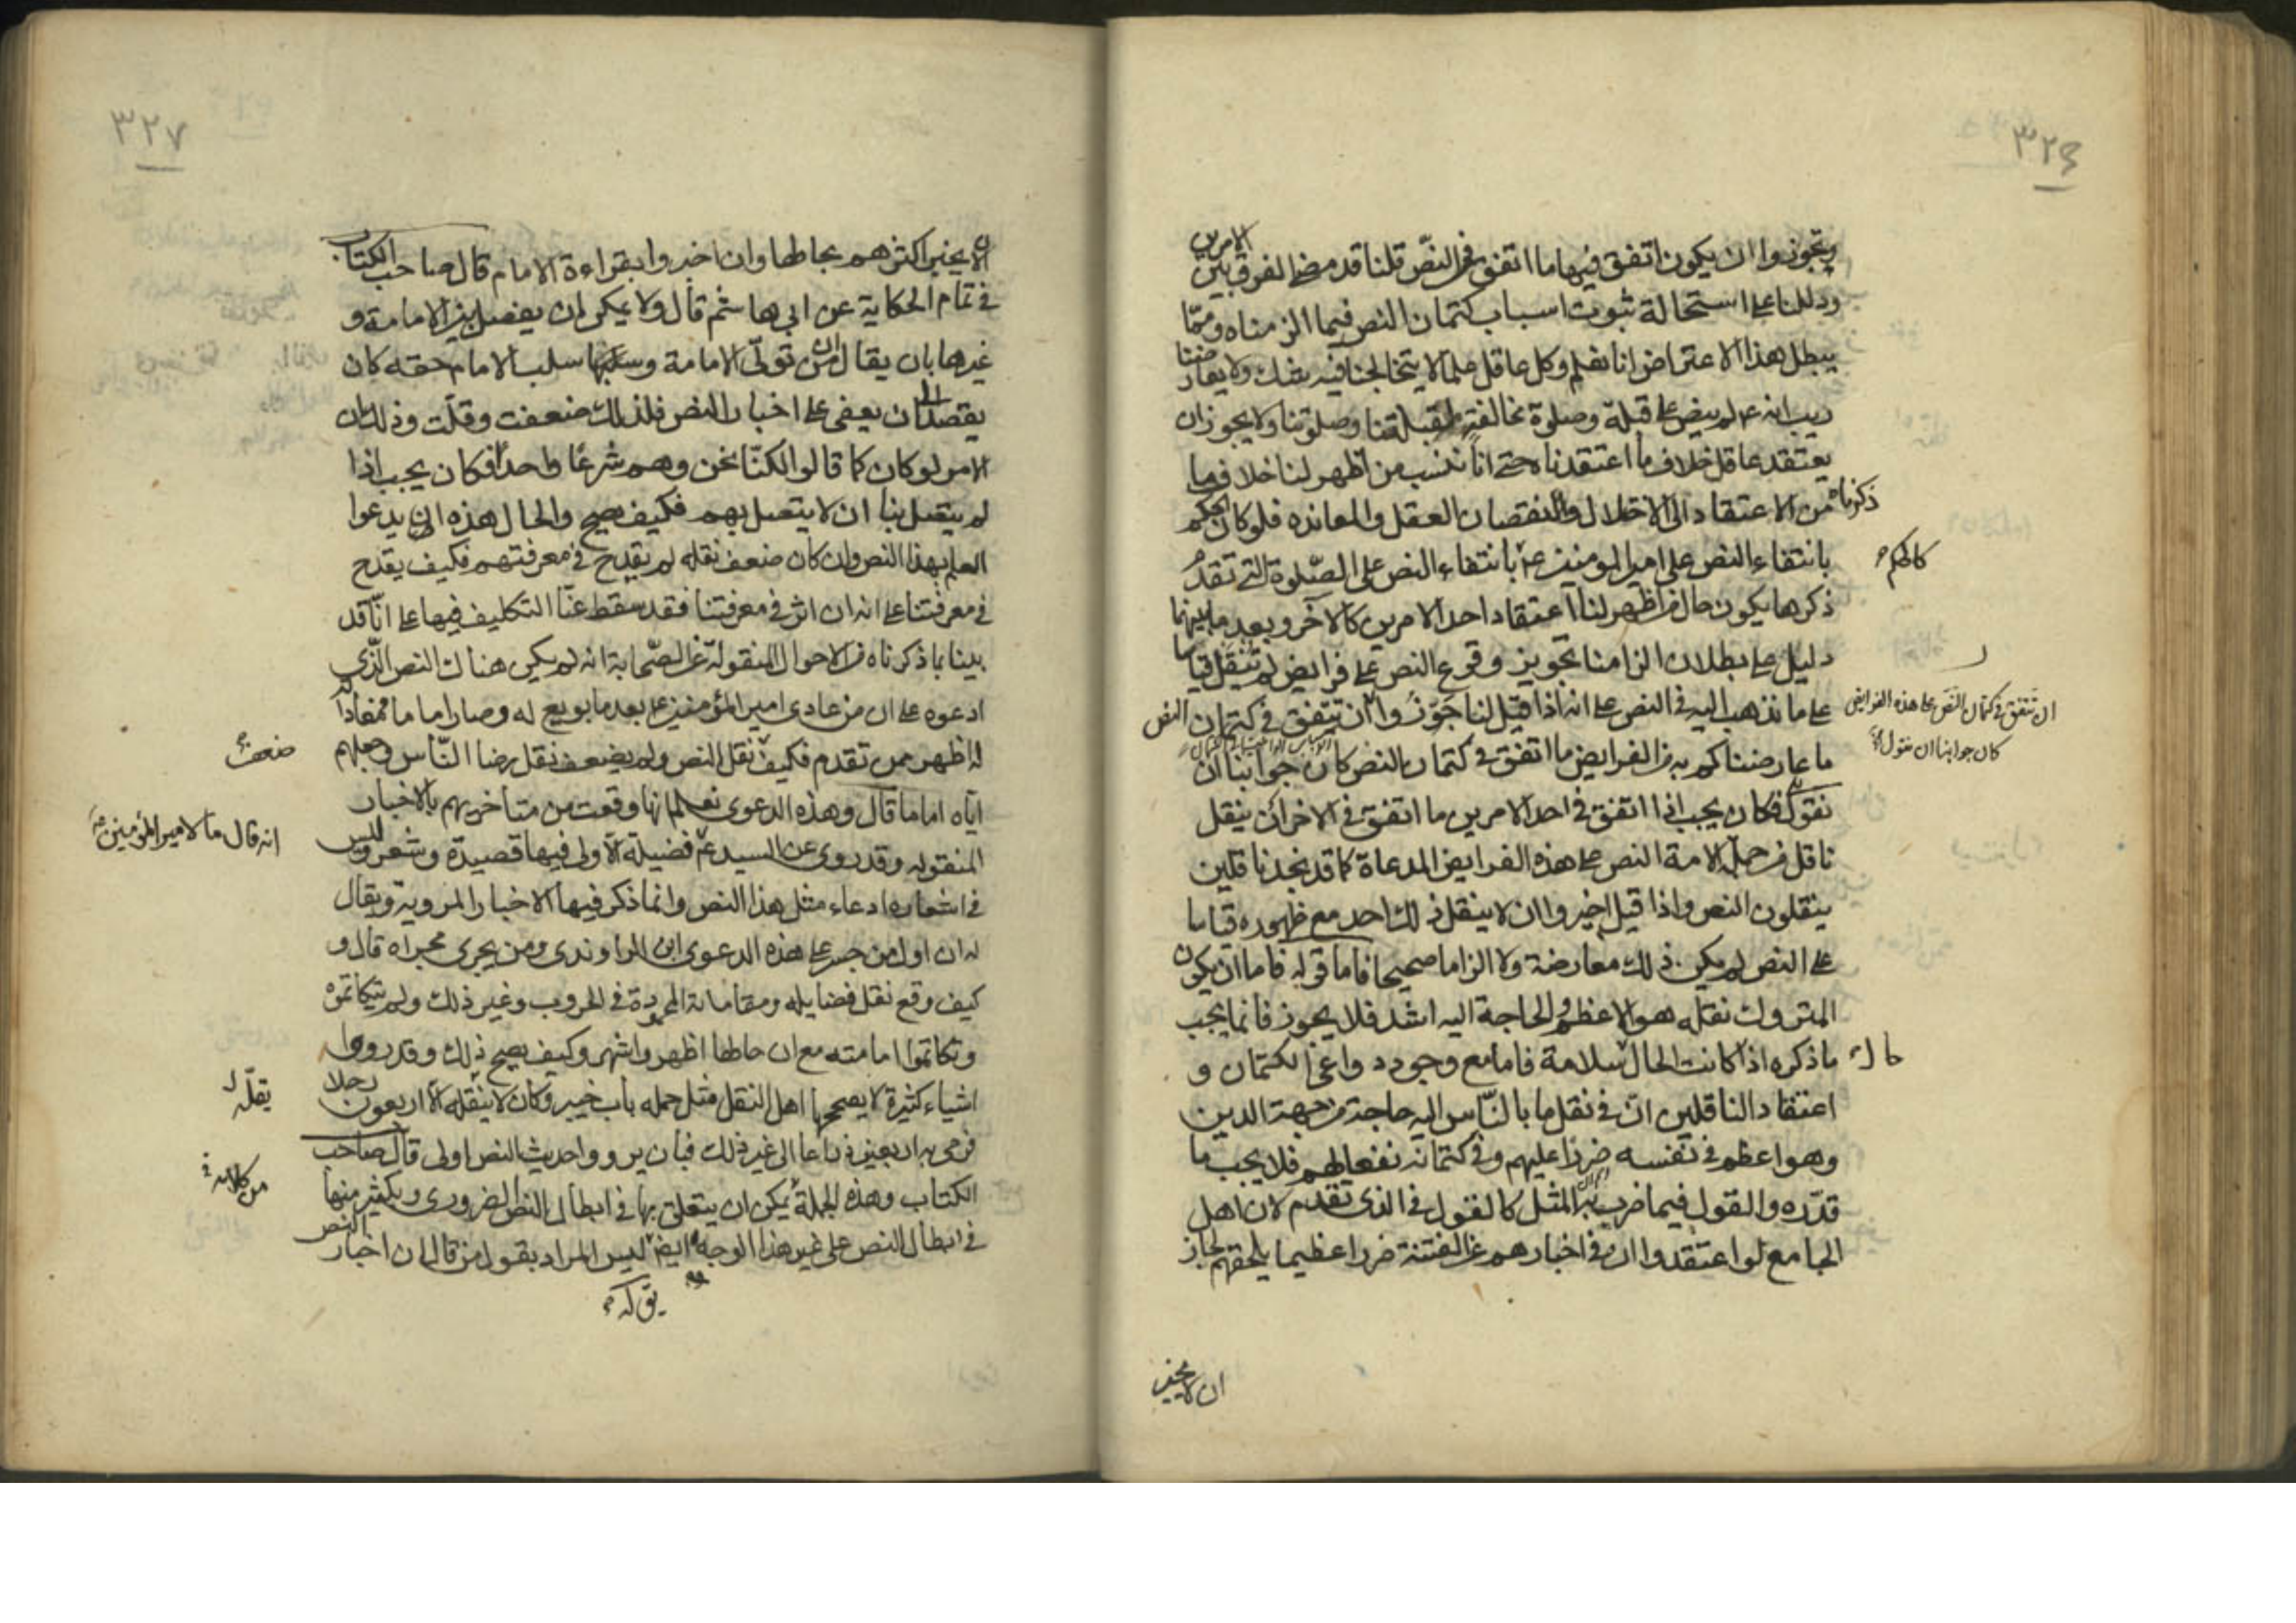 ٣٢٦
وتجوزوا ان يكون اتفق فيها ما اتفق في النصّ قلنا قد مضى الفرق بين الامرين
ودللنا على استحالة ثبوت اسباب كتمان النص فيما الزمناه ومما
يبطل هذا الاعتراض انا نعلم وكل عاقل علما لا يتخالجنا فيه شك ولا يعارضنا
ريب انه لم ينص على قبلة وصلوة مخالفة لقبلتنا وصلوتنا ولا يجوز ان
يعتقد عاقل خلاف ما اعتقدناه حتى انا ننسب من اظهر لنا خلاف ما
ذكرناه من الاعتقاد الى الاختلال والنقصان العقل والمعانده فلو كان الحكم
بانتفاء النص على امير المومنين ع بانتفاء النص على الصّلوة التي تقدم
كالحكم
ذكرها يكون حال من اظهر لنا اعتقاد احد الامرين كالاخر وبعد ما بينهما
دليل على بطلان الزامنا تجويز وقوع النص على فرايض لم تنقل قياسا
على ما نذهب اليه في النص على انه اذا قيل لنا جوّزوا ان تتفق في كتمان النص
ان تتفق في كتمان النص على هذه الفرايض
كان جوابنا ان نقول
ما عارضناكم به من الفرايض ما اتفق في كتمان النص كان جوابنا ان
نقول فكان يجب اذا اتفق في احد الامرين ما اتفق في الاخر ان ينقل
ناقل من جملة الامة النص على هذه الفرايض المدعاة كما قد نجد ناقلين
ينقلون النص واذا قيل اخبروا ان لا ينقل ذلك احد مع ظهوره قياسا
على النص لم يكن ذلك معارضة ولا الزاما صحيحا فاما قوله فاما ان يكون
المتروك نقله هو الاعظم والحاجة اليه اشد فلا يجوز فانما يجب
ما ذكره اذا كانت الحال سلامة فاما مع وجود دواعى الكتمان و
حال
اعتقاد الناقلين ان في نقل ما بالناس اليه حاجة من جهة الدين
وهو اعظم في نفسه ضررا عليهم وفي كتمانه نفعا لهم فلا يجب ما
قدّره والقول فيما ضرب به المثل كالقول في الذى تقدم لان اهل
الجامع لو اعتقدوا ان في اخبارهم عن الفتنة ضررا عظيما يلحقهم لجاز
ان لا يخبر
٣٢٧
ان لا يخبر اكثرهم بحالها وان اخبروا بقراءة الامام قال صاحب الكتاب
في تمام الحكاية عن ابي هاشم قال ولا يمكن ان يفصل بين الامامة و
غيرها بان يقال ان من تولى الامامة وسلبها سلب الامام حقه كان
يقصد الى ان يعفى على اخبار النص فلذلك ضعفت وقلّت وذلك ان
الامر لو كان كما قالوا لكنّا نحن وهم شرعًا واحدا فكان يجب اذا
لم يتصل بنا ان لا يتصل بهم فكيف يصح والحال هذه ان يدعوا
العلم بهذا النص وان كان ضعف نقله لم يقدح في معرفتهم فكيف يقدح
في معرفتنا على انه ان اثر في معرفتنا فقد سقط عنّا التكليف فيها على انّا قد
بينا بما ذكرناه من الاحوال المنقولة عن الصّحابة انه لم يكن هناك النص الّذي
ادعوه على ان من عادى امير المؤمنين ع بعد ما بويع له وصار اماما فمعاداته
له اظهر ممن تقدم فكيف نقل النص ولم يضعف نقل رضا النّاس وجعلهم
ضعف
ايّاه اماما قال وهذه الدعوى نعلم انها وقعت من متاخريهم بالاخبار
المنقوله وقد روى عن السيد فضيلة الا ولى فيها قصيدة وشعر وليس
انه قال ما لامير المؤمنين
في اشعاره ادعاء مثل هذا النص وانما ذكر فيها الاخبار المروية ويقال
له ان اول من جسر على هذه الدعوى ابن الراوندى ومن يجرى مجراه قال و
كيف وقع نقل فضايله ومقاماته المحمودة في الحروب وغير ذلك ولم يتكاتموه
وتكاتموا امامته مع ان حالها اظهر واشهر وكيف يصح ذلك وقد رووا
اشياء كثيرة لا يصححها اهل النقل مثل حمله باب خيبر وكان لا ينقله الا اربعون رجلا
يقلّه
فرمى به اربعين ذراعا الى غير ذلك فبان يرووا حديث النص اولى قال صاحب
الكتاب وهذه الجملة يمكن ان يتعلق بها في ابطال النص الضرورى ويكثر منها
من كلامه في
في ابطال النص على غير هذا الوجه ايضا ليس المراد بقول من قال ان اخبار النص
يق له